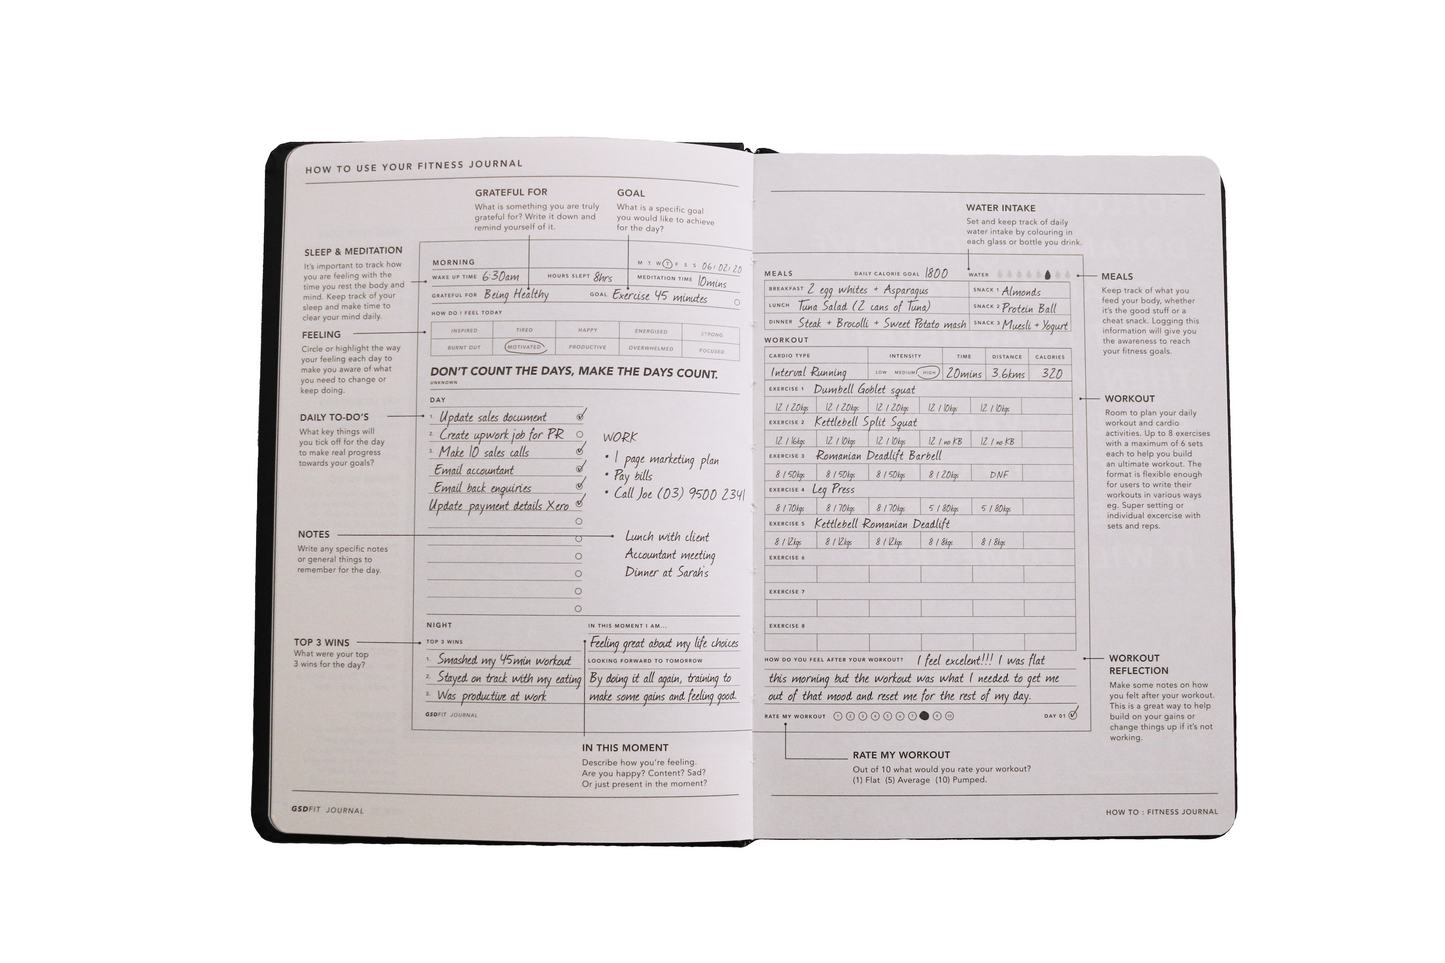 HOW TO USE YOUR FITNESS JOURNAL
GRATEFUL FOR
What is something you are truly
grateful for? Write it down and
remind yourself of it.
GOAL
What is a specific goal
you would like to achieve
for the day?
SLEEP & MEDITATION
It's important to track how
you are feeling with the
time you rest the body and
mind. Keep track of your
sleep and make time to
clear your mind daily.
FEELING
Circle or highlight the way
your feeling each day to
make you aware of what
you need to change or
keep doing.
DAILY TO-DO'S
What key things will
you tick off for the day
to make real progress
towards your goals?
NOTES
Write any specific notes
or general things to
remember for the day.
TOP 3 WINS
What were your top
3 wins for the day?
MORNING M T W T F S S 06/02/20
WAKE UP TIME 6:30am HOURS SLEPT 8hrs MEDITATION TIME 10mins
GRATEFUL FOR Being Healthy GOAL Exercise 45 minutes
HOW DO I FEEL TODAY
INSPIRED TIRED HAPPY ENERGISED STRONG
BURNT OUT MOTIVATED PRODUCTIVE OVERWHELMED FOCUSED
DON'T COUNT THE DAYS, MAKE THE DAYS COUNT.
UNKNOWN
DAY
1. Update sales document
2. Create upwork job for PR
3. Make 10 sales calls
Email accountant
Email back enquiries
Update payment details Xero
WORK
• 1 page marketing plan
• Pay bills
• Call Joe (03) 9500 2341
Lunch with client
Accountant meeting
Dinner at Sarah's
NIGHT
TOP 3 WINS
1. Smashed my 45min workout
2. Stayed on track with my eating
3. Was productive at work
IN THIS MOMENT I AM...
Feeling great about my life choices
LOOKING FORWARD TO TOMORROW
By doing it all again, training to
make some gains and feeling good.
GSDFIT JOURNAL
IN THIS MOMENT
Describe how you're feeling.
Are you happy? Content? Sad?
Or just present in the moment?
GSDFIT JOURNAL
WATER INTAKE
Set and keep track of daily
water intake by colouring in
each glass or bottle you drink.
MEALS DAILY CALORIE GOAL 1800 WATER
BREAKFAST 2 egg whites + Asparagus SNACK 1 Almonds
LUNCH Tuna Salad (2 cans of Tuna) SNACK 2 Protein Ball
DINNER Steak + Brocolli + Sweet Potato mash SNACK 3 Muesli + Yogurt
WORKOUT
CARDIO TYPE INTENSITY TIME DISTANCE CALORIES
Interval Running LOW MEDIUM HIGH 20mins 3.6kms 320
EXERCISE 1 Dumbell Goblet squat
12 / 20kgs 12 / 20kgs 12 / 20kgs 12 / 10kgs 12 / 10kgs
EXERCISE 2 Kettlebell Split Squat
12 / 16kgs 12 / 10kgs 12 / 10kgs 12 / no KB 12 / no KB
EXERCISE 3 Romanian Deadlift Barbell
8 / 50kgs 8 / 50kgs 8 / 50kgs 8 / 20kgs DNF
EXERCISE 4 Leg Press
8 / 70kgs 8 / 70kgs 8 / 70kgs 5 / 80kgs 5 / 80kgs
EXERCISE 5 Kettlebell Romanian Deadlift
8 / 12kgs 8 / 12kgs 8 / 12kgs 8 / 8kgs 8 / 8kgs
EXERCISE 6
EXERCISE 7
EXERCISE 8
HOW DO YOU FEEL AFTER YOUR WORKOUT? I feel excelent!!! I was flat
this morning but the workout was what I needed to get me
out of that mood and reset me for the rest of my day.
RATE MY WORKOUT 1 2 3 4 5 6 7 9 10 DAY 01
RATE MY WORKOUT
Out of 10 what would you rate your workout?
(1) Flat (5) Average (10) Pumped.
MEALS
Keep track of what you
feed your body, whether
it's the good stuff or a
cheat snack. Logging this
information will give you
the awareness to reach
your fitness goals.
WORKOUT
Room to plan your daily
workout and cardio
activities. Up to 8 exercises
with a maximum of 6 sets
each to help you build
an ultimate workout. The
format is flexible enough
for users to write their
workouts in various ways
eg. Super setting or
individual excercise with
sets and reps.
WORKOUT
REFLECTION
Make some notes on how
you felt after your workout.
This is a great way to help
build on your gains or
change things up if it's not
working.
HOW TO : FITNESS JOURNAL